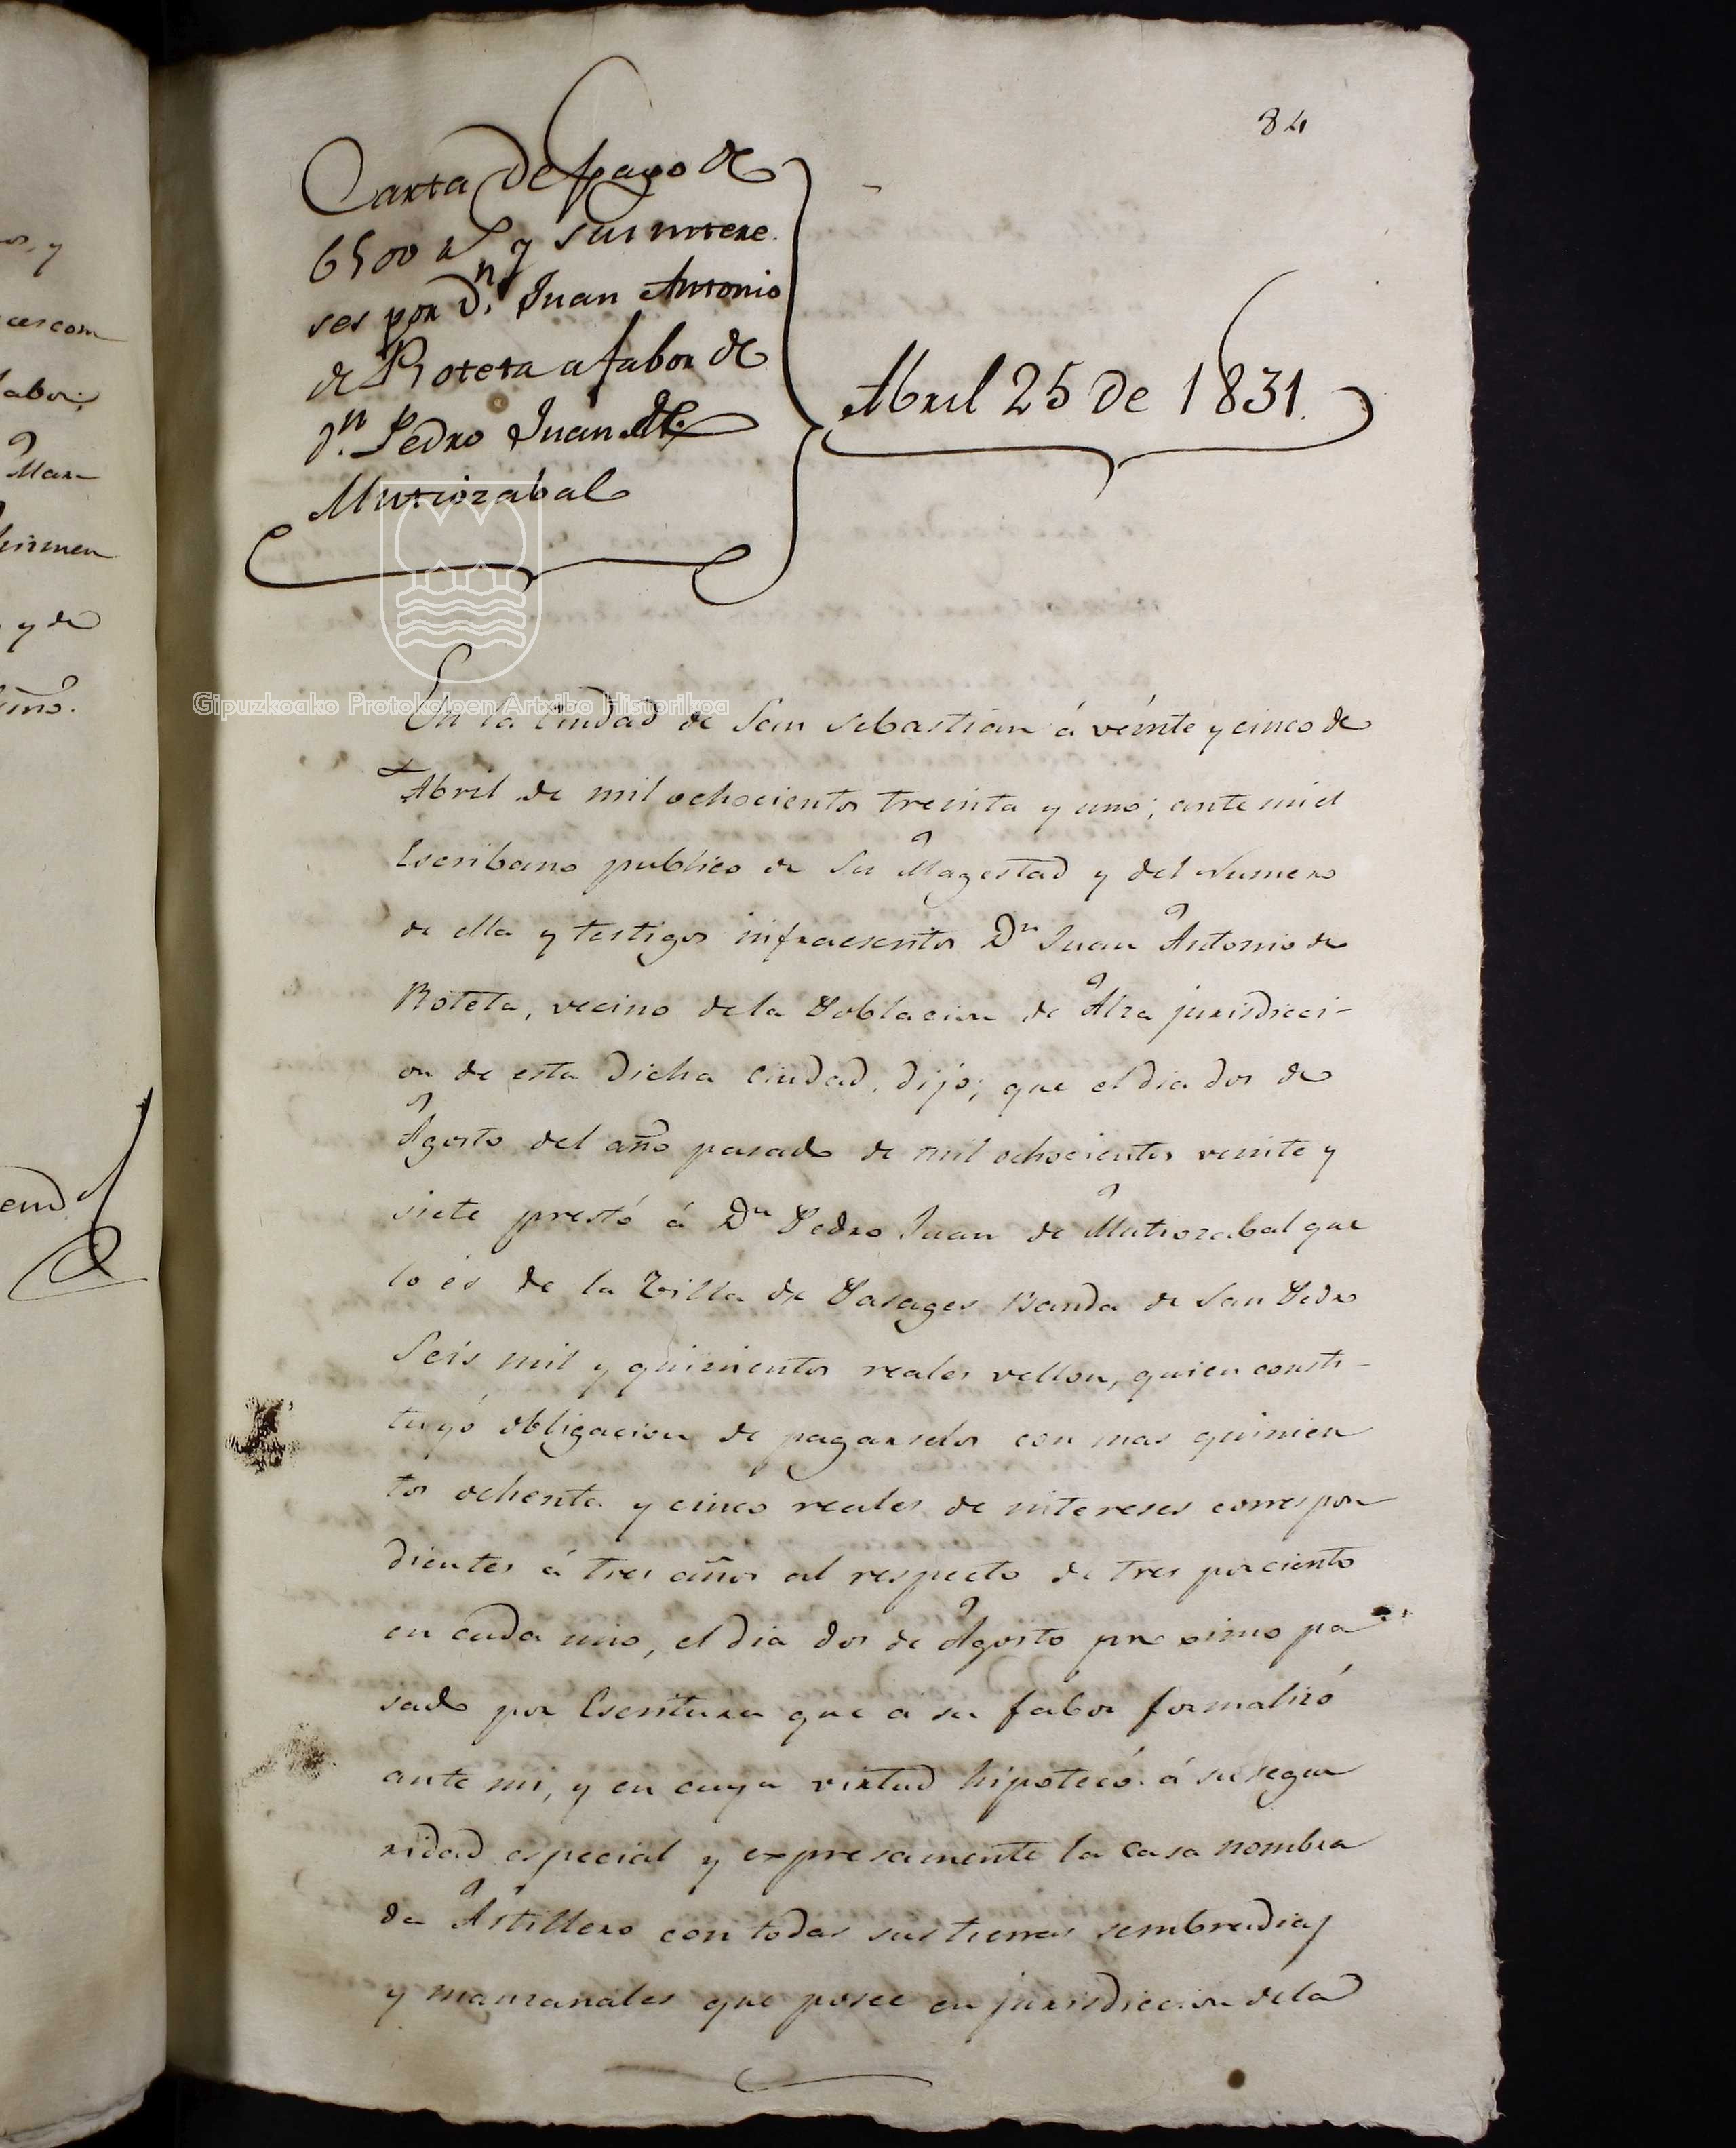 84
Carta de pago de
6500 rs y sus intere
ses por Dn. Juan Antonio
de Roteta a fabor de
Dn. Pedro Juan de
Mutiozabal
Abril 25 de 1831.
Gipuzkoako Protokoloen Artxibo Historikoa
En la Ciudad de San Sebastian á veinte y cinco de
Abril de mil ochocientos treinta y uno; ante mi el
Escribano publico de Su Magestad y del Numero
de ella y testigos infraescritos Dn Juan Antonio de
Roteta, vecino de la Poblacion de Alza jurisdicci-
on de esta dicha Ciudad, dijo; que el dia dos de
Agosto del año pasado de mil ochocientos veinte y
siete prestó á Dn Pedro Juan de Mutiozabal que
lo es de la Villa de Pasages Banda de San Pedro
Seis mil y quinientos reales vellon, quien consti-
tuyó obligacion de pagarselos con mas quinien
tos ochenta y cinco reales de intereses correspon
dientes á tres años al respecto de tres por ciento
en cada uno, el dia dos de Agosto proximo pa
sado por Escritura que a su fabor formalizó
ante mi, y en cuya virtud hipotecó á su segu
ridad especial y expresamente la Casa nombra
da Astillero con todas sus tierras sembradias
y manzanales que posee en jurisdiccion de la
os, y
cescom
labor,
Mar
y de